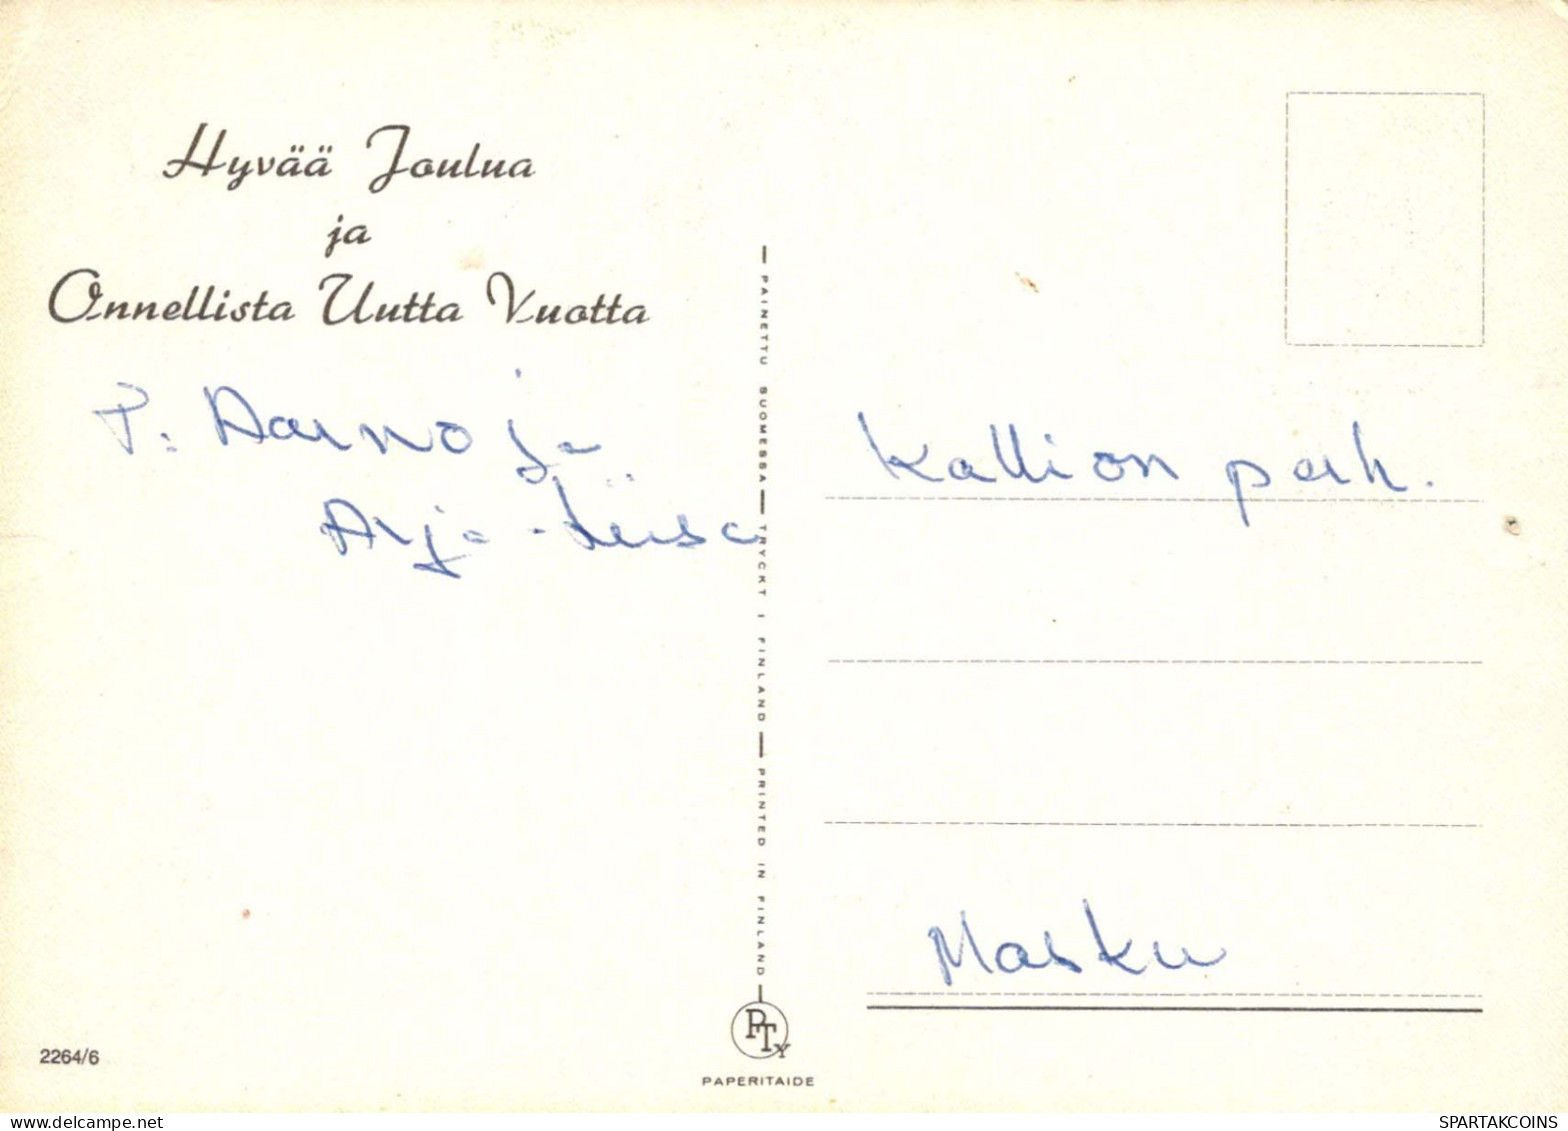 Hyvää Joulua
ja
Onnellista Uutta Vuotta
T. Aarno ja
Arja-Liisa
PAINETTU SUOMESSA — TRYCKT I FINLAND — PRINTED IN FINLAND
Kallion perh.
Masku
2264/6
PTY
PAPERITAIDE
SPARTAKCOINS